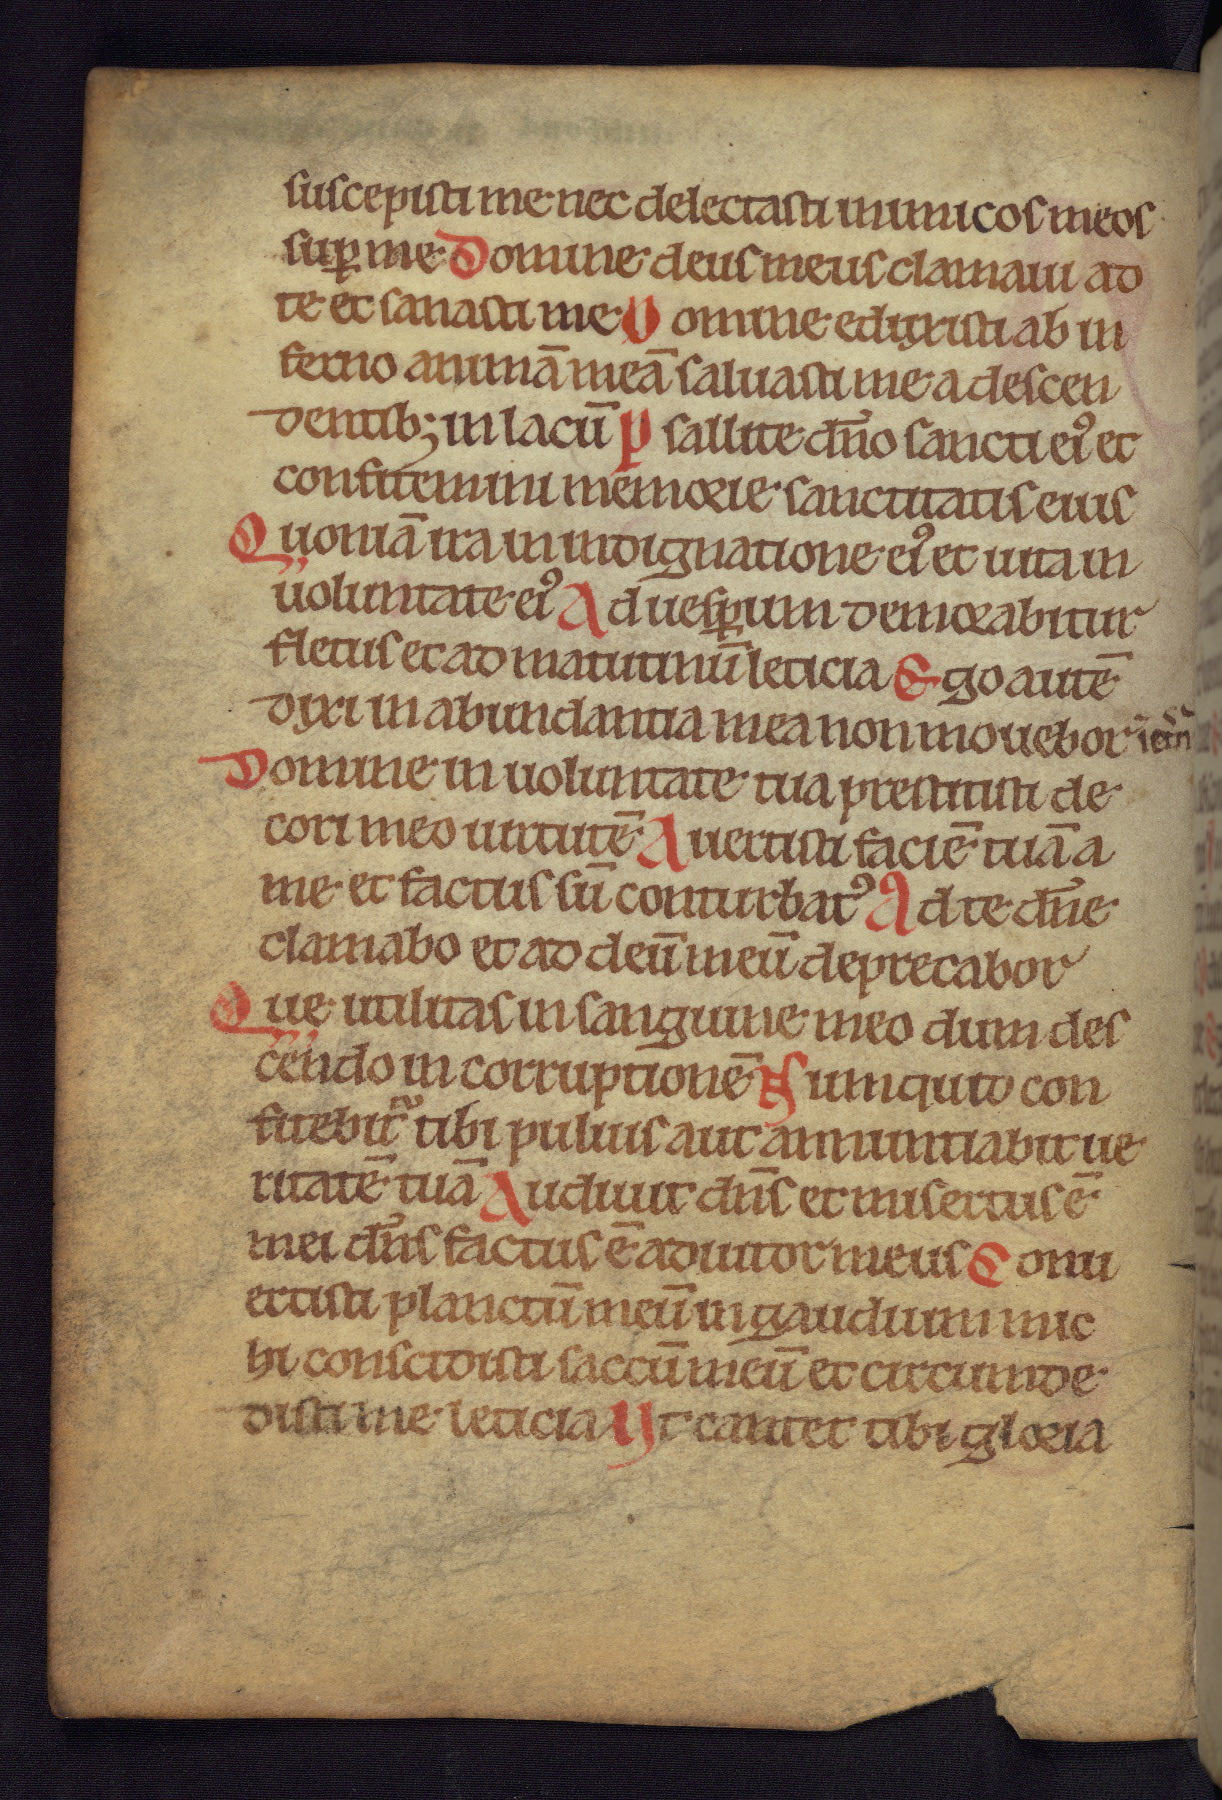 suscepisti me nec delectasti inimicos meos
suꝑ me Domine deus meus clamaui ad
te et sanasti me Domine eduxisti ab in
ferno animā meā saluasti me a descen
dentib; in lacū Psallite dño sancti eiꝰ et
confitemini memorie sanctitatis eius
Quoniā ira in indignatione eiꝰ et uita in
uoluntate eiꝰ Ad uesꝑum demorabitur
fletus et ad matutinū leticia Ego autē
dixi in abundantia mea non mouebor ī etñ
Domine in uoluntate tua prestitisti de
cori meo uirtutē Auertisti faciē tuā a
me et factus sū conturbatꝰ Ad te dñe
clamabo et ad deū meū deprecabor
Que utilitas in sanguine meo dum des
cendo in corruptionē Numquid con
fitebit᷑ tibi puluis aut annuntiabit ue
ritatē tuā Audiuit dñs et misertus ē
mei dñs factus ē adiutor meus Conu
ertisti planctū meū in gaudium mic
hi conscidisti saccū meū et circumde
disti me leticia Ut cantet tibi gloria